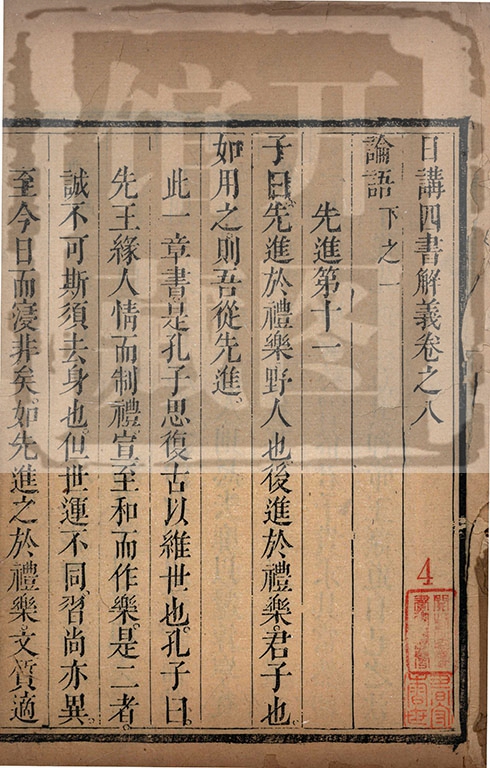 日講四書解義卷之八
論語下之一
先進第十一
子曰。先進於禮樂。野人也。後進於禮樂。君子也
如用之。則吾從先進。
此一章書。是孔子思復古以維世也。孔子曰。
先王緣人情而制禮。宣至和而作樂。是二者。
誠不可斯須去身也。但世運不同。習尚亦異。
至今日而寖非矣。如先進之於禮樂。文質適
4